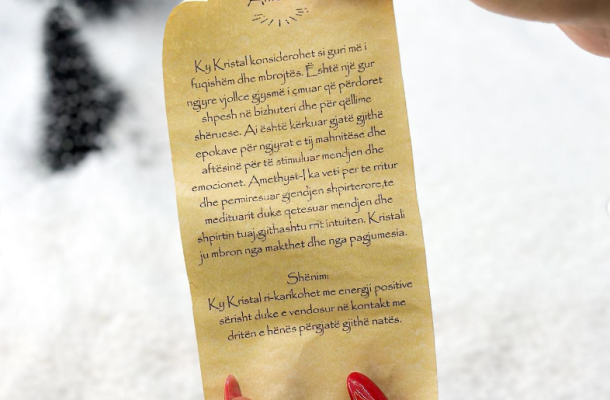 Ky Kristal konsiderohet si guri më i
fuqishëm dhe mbrojtës. Është një gur
ngjyre vjollce gjysmë i çmuar që përdoret
shpesh në bizhuteri dhe për qëllime
shëruese. Ai është kërkuar gjatë gjithë
epokave për ngjyrat e tij mahnitëse dhe
aftësinë për të stimuluar mendjen dhe
emocionet. Amethyst-I ka veti per te rritur
dhe permiresuar gjendjen shpirterore,te
medituarit duke qetesuar mendjen dhe
shpirtin tuaj,gjithashtu rrit intuiten. Kristali
ju mbron nga makthet dhe nga pagjumesia.
Shënim:
Ky Kristal ri-karikohet me energji positive
sërisht duke e vendosur në kontakt me
dritën e hënës përgjatë gjithë natës.